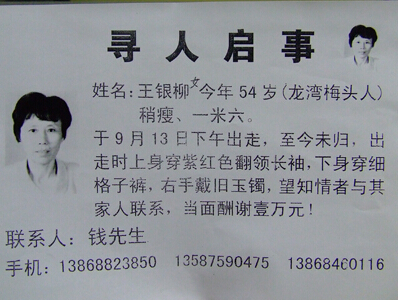 寻人启事
姓名:王银柳女今年54岁(龙湾梅头人)
稍瘦、一米六。
于9月13日下午出走，至今未归，出
走时上身穿紫红色翻领长袖，下身穿细
格子裤，右手戴旧玉镯，望知情者与其
家人联系，当面酬谢壹万元！
联系人：钱先生
手机：13868823850 13587590475 13868460116